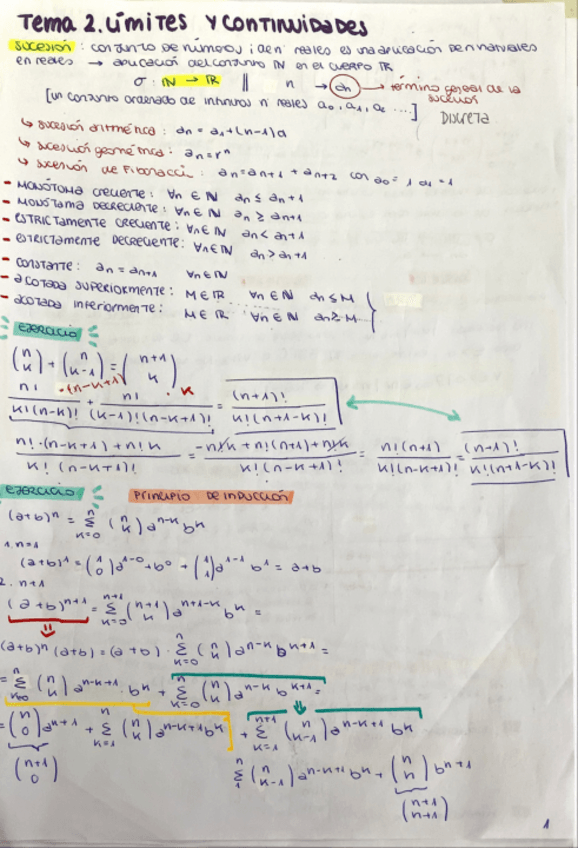 Tema 2. Límites y continuidades
sucesión: conjunto de números; de nº reales es una aplicación de naturales
en reales → aplicación del conjunto ℕ en el cuerpo ℝ
σ: ℕ → ℝ || n → an → término general de la sucesión
[un conjunto ordenado de infinitos nº reales a₀, a₁, a₂ ...] Discreta
↳ sucesión aritmética: an = a1 + (n-1)d
↳ sucesión geométrica: an = rⁿ
↳ sucesión de Fibonacci: an = an+1 + an+2 con a0 = 1 a1 = 1
- MONÓTONA CRECIENTE: ∀n ∈ ℕ an ≤ an+1
- MONÓTAMA DECRECIENTE: ∀n ∈ ℕ an ≥ an+1
- ESTRICTAMENTE CRECIENTE: ∀n ∈ ℕ an < an+1
- ESTRICTAMENTE DECRECIENTE: ∀n ∈ ℕ an > an+1
- CONSTANTE: an = an+1 ∀n ∈ ℕ
- acotada SUPERIORMENTE: M ∈ ℝ ∀n ∈ ℕ an ≤ M
- acotada inferiormente: M ∈ ℝ ∀n ∈ ℕ an ≥ M
EJERCICIO
(n k) + (n k-1) = (n+1 k)
n! · (n-k+1) / k!(n-k)! + n! · k / (k-1)!(n-k+1)! = (n+1)! / k!(n+1-k)!
n! · (n-k+1) + n! k / k! (n-k+1)! = -n!k + n!(n+1) + n!k / k!(n-k+1)! = n!(n+1) / k!(n-k+1)! = (n+1)! / k!(n+1-k)!
EJERCICIO PRINCIPIO DE INDUCCIÓN
(a+b)ⁿ = Σ k=0 n (n k) a^n-k b^k
1. n=1
(a+b)¹ = (1 0) a^1-0 + b⁰ + (1 1) a^1-1 b¹ = a+b
2. n+1
(a+b)^n+1 = Σ k=0 n+1 (n+1 k) a^n+1-k b^k =
(a+b)ⁿ (a+b) = (a+b) · Σ k=0 n (n k) a^n-k b^k+1 =
= Σ k=0 n (n k) a^n-k+1 · b^k + Σ k=0 n (n k) a^n-k b^k+1 =
= (n 0) a^n+1 + Σ k=1 n (n k) a^n-k+1 b^k + Σ k=1 n+1 (n k-1) a^n-k+1 b^k
(n+1 0) Σ 1 n (n k-1) a^n-k+1 b^k + (n n) b^n+1
(n+1 n+1)
1